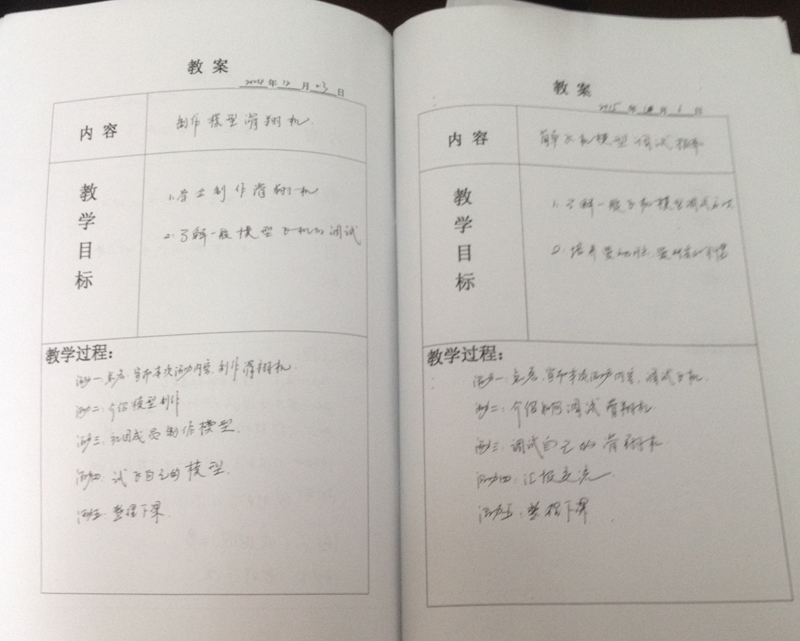 教案
2014年12月03日
内容
制作模型滑翔机
教学目标
1.学会制作滑翔机
2.了解一般模型飞机的调试
教学过程：
活动一：点名，宣布本次活动内容，制作滑翔机
活动二：介绍模型制作
活动三：社团成员制作模型.
活动四：试飞自己的模型.
活动五：整理下课.
教案
2015年 月6日
内容
飞机模型调试
教学目标
1.了解一般飞机模型调试方法
2.培养
教学过程：
活动一：点名，宣布本次活动内容，调试飞机.
活动二：介绍如何调试滑翔机
活动三：调试自己的滑翔机
活动四：汇报交流
活动五：整理下课